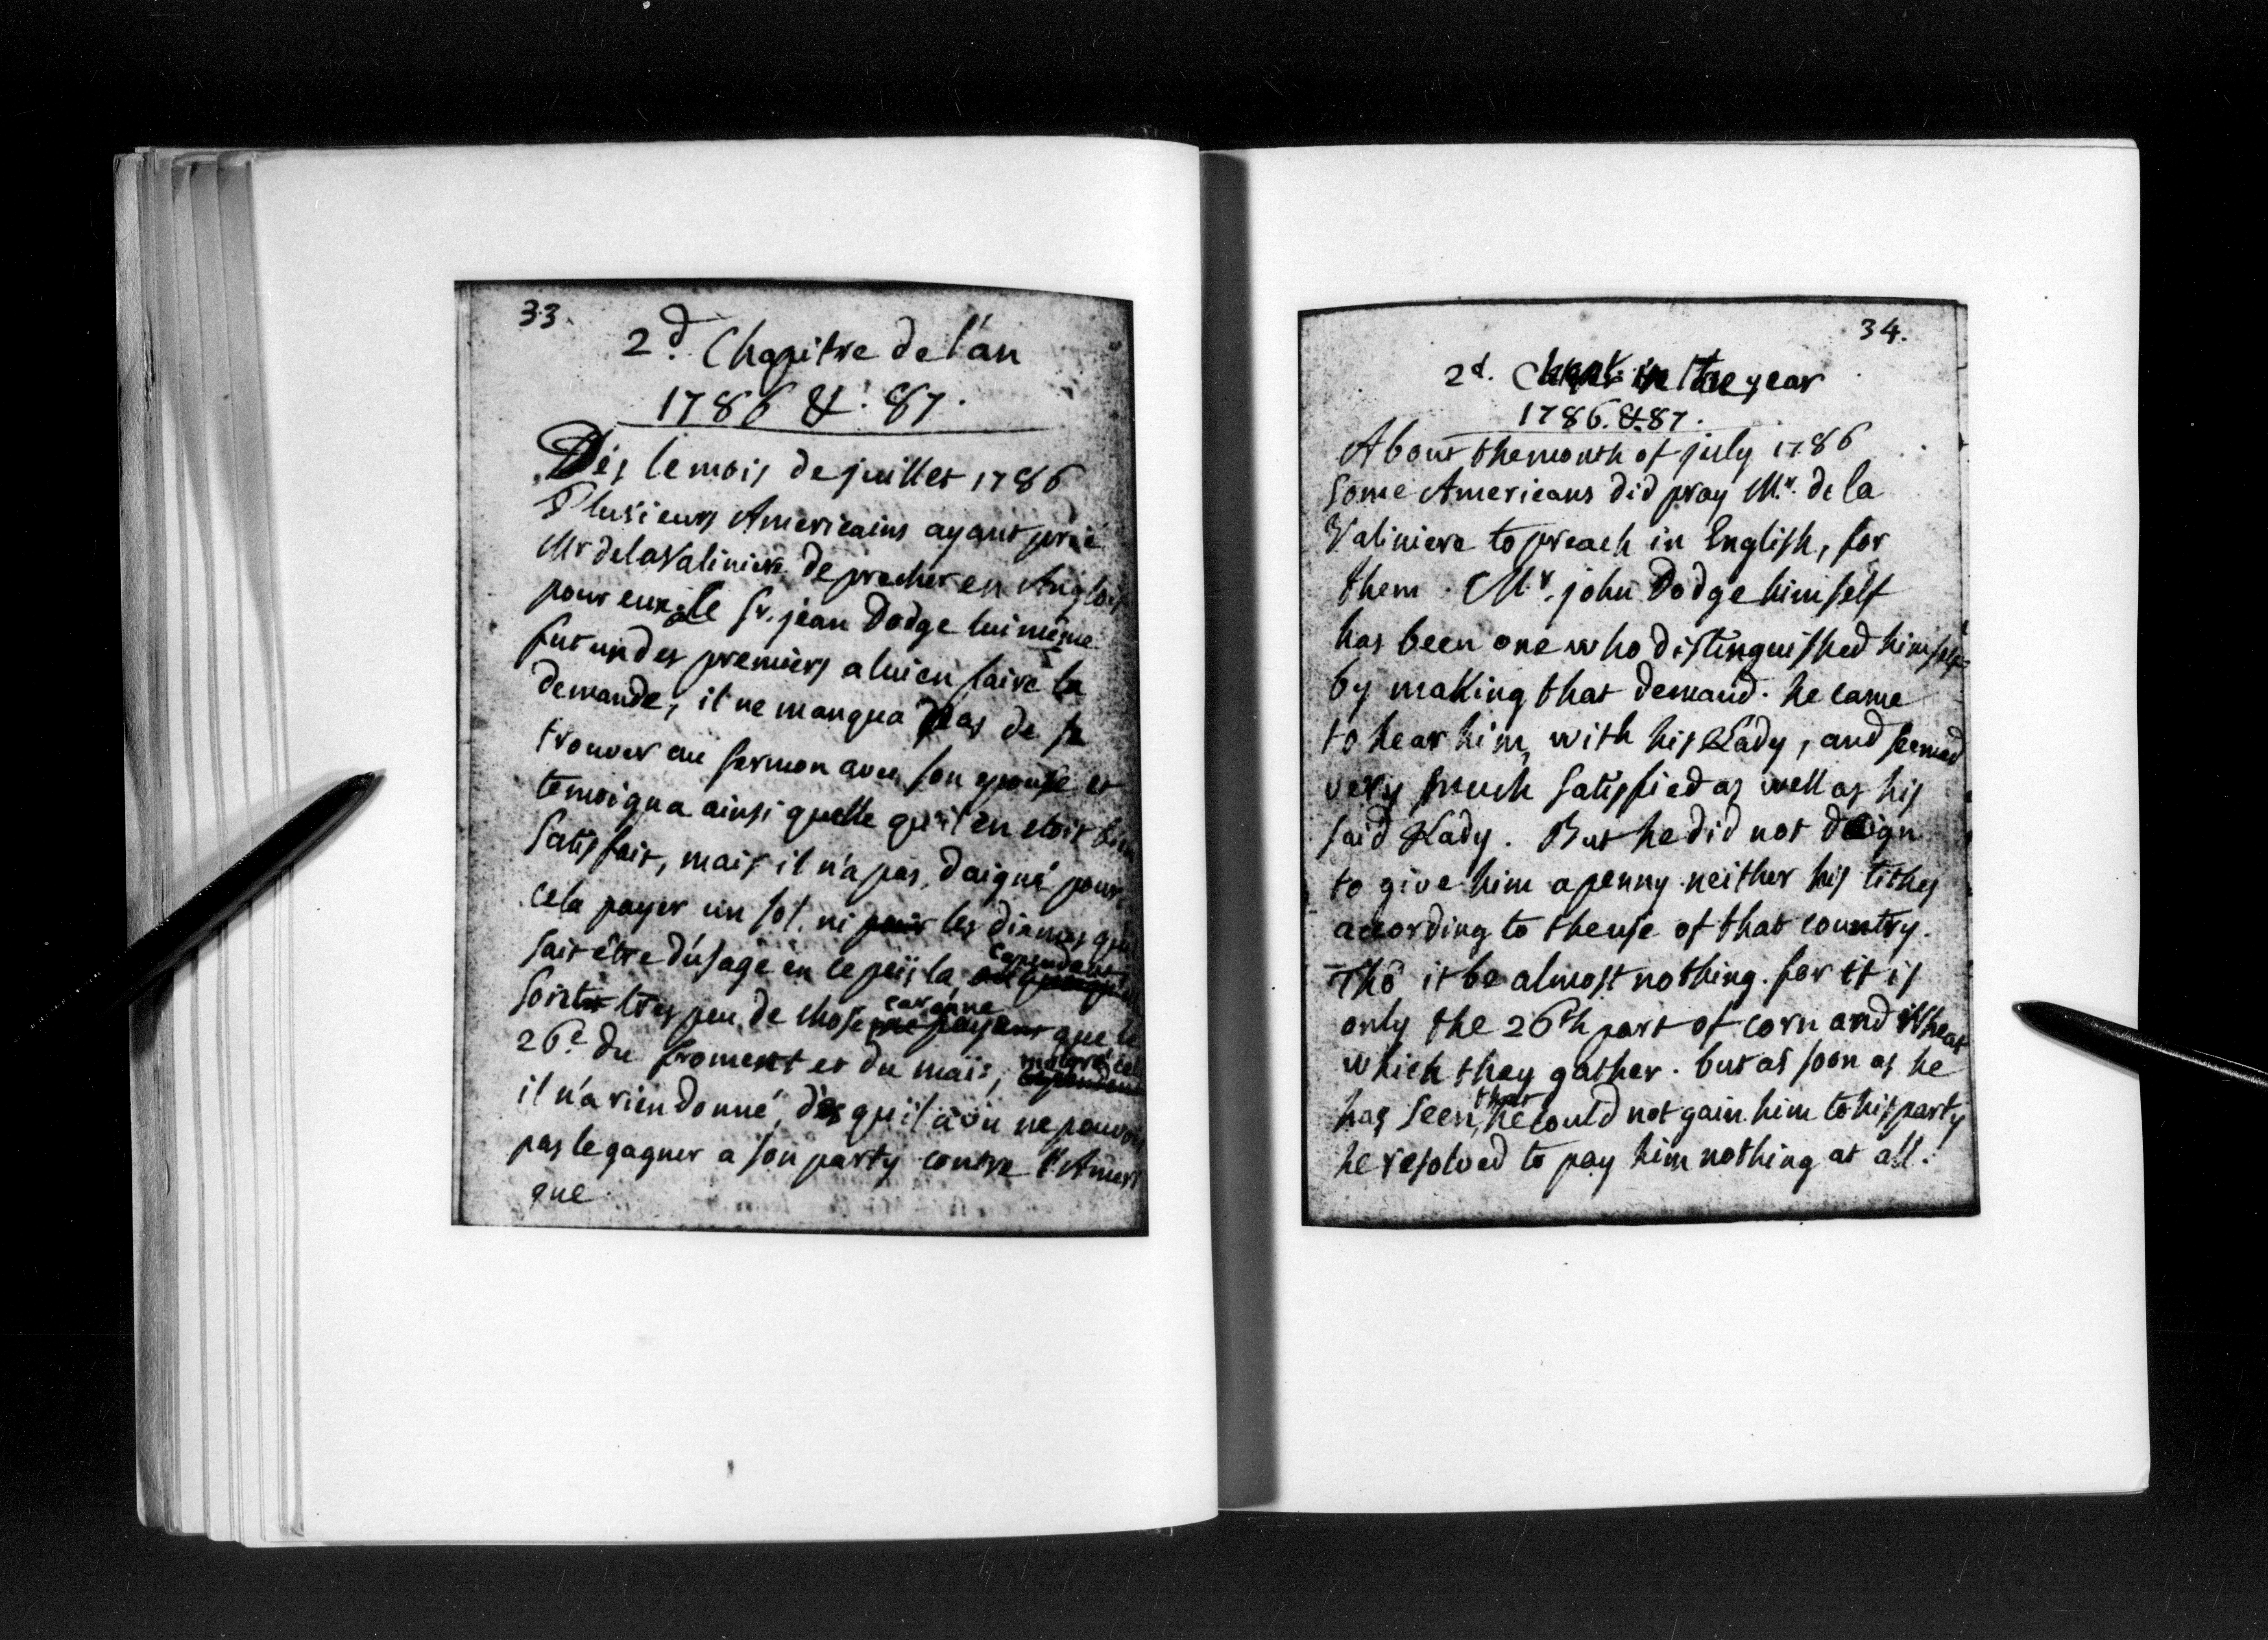 33.
2d. Chapitre de l'an
1786 &. 87.
Dés le mois de juillet 1786
Plusieurs Americains ayant prié
Mr de la Valiniere de precher en Anglois
pour eux, le Sr. jean Dodge lui même
fut un des premiers a lui en faire la
demande, il ne manqua pas de se
trouver au sermon avec son epouse et
temoigna ainsi quelle qu'il en etoit bien
Satisfait, mais il n'a pas daigné pour
cela payer un sol. ni pour les dixmes qu'il
sait être d'usage en ce peiï la, cependant
Soit tres peu de chose car on ne payant que le
26e. du froment et du maïs, malgré cela cependant
il n'a rien donné, dès qu'il a vu ne pouvoir
pas le gagner a son party contre l'Ameri
que.
34.
2d. Chapt. in the year
1786. &. 87.
About the month of july 1786
Some Americans did pray Mr. de la
Valiniere to preach in English, for
them. Mr. john Dodge himself
has been one who distinguished himself
by making that demand. he came
to hear him, with his Lady, and seemed
very much satisfied as well as his
said Lady. But he did not deign
to give him a penny neither his tithes
according to the use of that country.
Tho it be almost nothing. for it is
only the 26th part of corn and Wheat
which they gather. but as soon as he
has seen, that he could not gain him to his party
he resolved to pay him nothing at all.